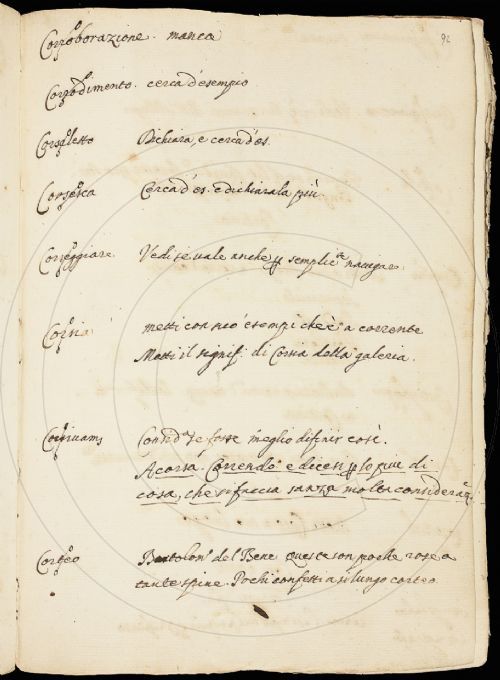 92
Corroborazione. manca
Corrodimento. cerca d'esempio
Corsaletto Dichiara, e cerca d'es.
Corsesca Cerca d'es. e dichiarala più.
Corseggiare. Vedi se vale anche p semplicte navigar.
Corsia metti con
esempi che è a corrente
Metti il signif: di Corsia della galeria.
Consid.a se fosse meglio difinir così.
A corsa. Correndo e dicesi p lo più di
cosa, che si faccia sanza molta consideraz.
Corteo Bartolom. del Bene queste son poche rose a
tante spine. Pochi confetti a sì lungo corteo